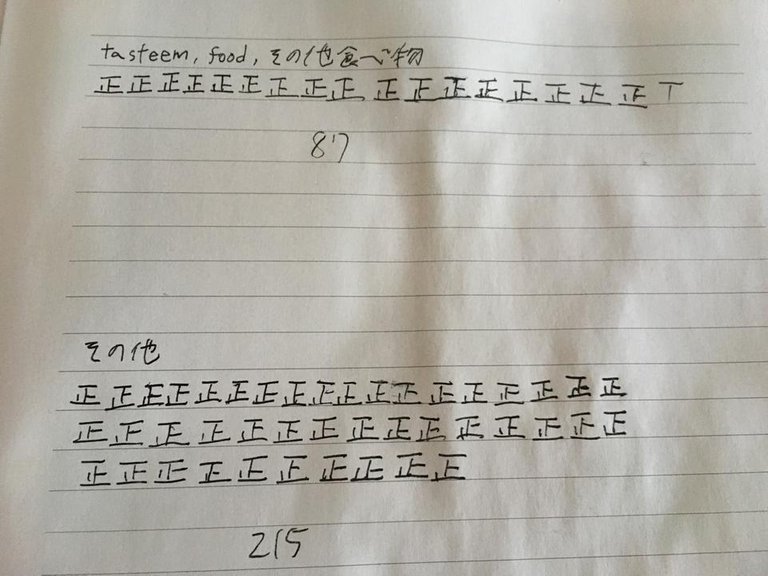 tasteem, food, その他食べ物
正正正正正正正正正正正正正正正正正丅
87
その他
正正正正正正正正正正正正正正正正正正
正正正正正正正正正正正正正正正
正正正正正正正正正正
215